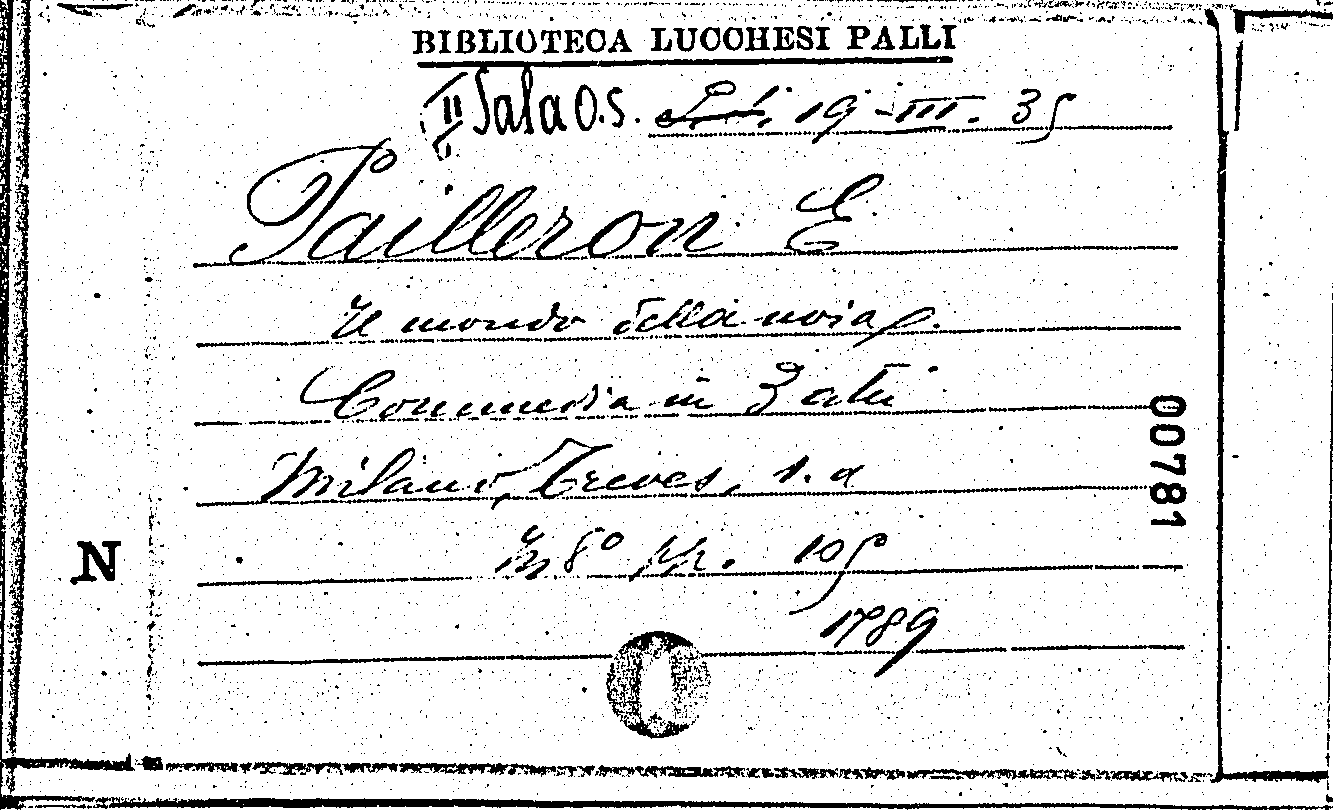 BIBLIOTECA LUCCHESI PALLI
II Sala O.S. 19-III. 35
Pailleron E.
Il mondo della noia
Commedia in 3 atti
Milano, Treves, s.a
In 8° pp. 105
1789
00781
N